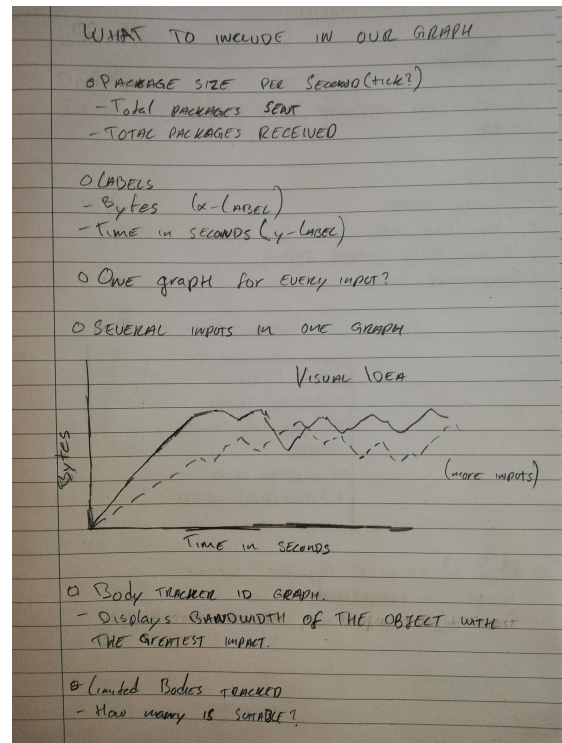 WHAT TO INCLUDE IN OUR GRAPH
O PACKAGE SIZE PER SECOND (tick?)
- Total PACKAGES SENT
- TOTAL PACKAGES RECEIVED
O LABELS
- Bytes (x-LABEL)
- Time in SECONDS (y-LABEL)
O ONE grapH for EVERY input?
O SEVERAL inputs in ONE GRAPH
VISUAL IDEA
Bytes
(more inputs)
Time in SECONDS
O Body TRACKER ID GRAPH.
- Displays BANDWIDTH of THE OBJECT WITH
THE GREATEST IMPACT.
O Limited Bodies TRACKED
- How many is SUITABLE?